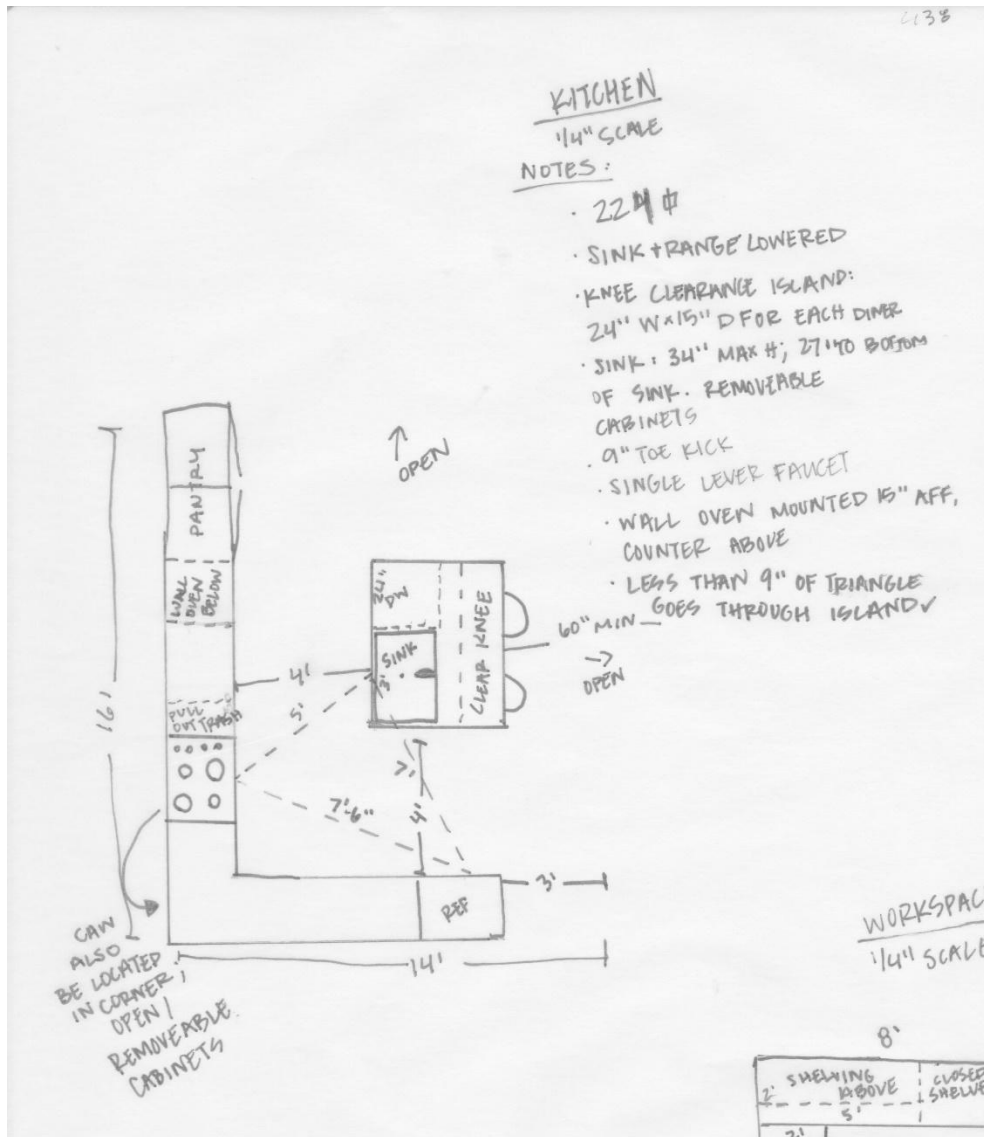 KITCHEN
1/4" SCALE
NOTES:
· SINK + RANGE LOWERED
· KNEE CLEARANCE ISLAND:
24" W x 15" D FOR EACH DINER
· SINK: 34" MAX H; 27" TO BOTTOM
OF SINK. REMOVEABLE
CABINETS
· 9" TOE KICK
· SINGLE LEVER FAUCET
· WALL OVEN MOUNTED 15" AFF,
COUNTER ABOVE
· LESS THAN 9" OF TRIANGLE
GOES THROUGH ISLAND✓
OPEN
PANTRY
WALL
OVEN
BELOW
24"
DW
SINK
3'
CLEAR KNEE
60" MIN
OPEN
4'
5'
16'
PULL
OUT TRASH
7'
7'-6"
4'
REF
3'
14'
CAN
ALSO
BE LOCATED
IN CORNER;
OPEN/
REMOVEABLE
CABINETS
WORKSPAC
1/4" SCALE
8'
2'
SHELVING
ABOVE
5'
CLOSED
SHELVE